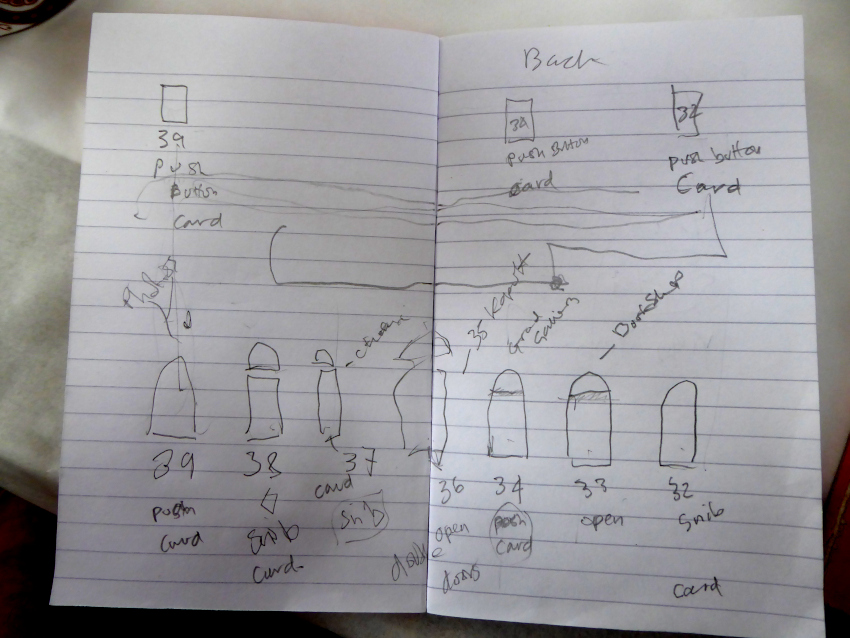 Back
39
push
Button
card
39
push Button
card
32
push button
Card
35
Bookshop
39
push
card
38
snib
card
37
card
snib
36
open
double
doors
34
push
card
33
open
32
snib
card